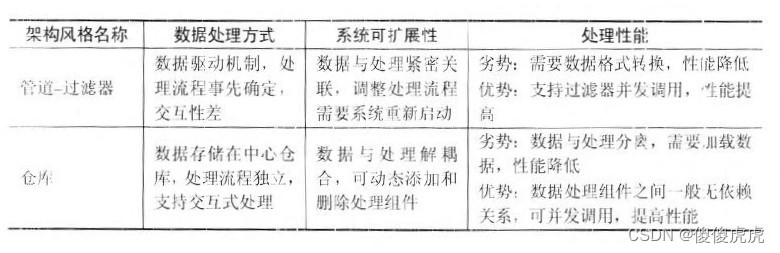 架构风格名称 数据处理方式 系统可扩展性 处理性能
管道-过滤器
数据驱动机制，处
理流程事先确定，
交互性差
数据与处理紧密关
联，调整处理流程
需要系统重新启动
劣势：需要数据格式转换，性能降低
优势：支持过滤器并发调用，性能提
高
仓库
数据存储在中心仓
库，处理流程独立，
支持交互式处理
数据与处理解耦
合，可动态添加和
删除处理组件
劣势：数据与处理分离，需要加载数
据，性能降低
优势：数据处理组件之间一般无依赖
关系，可并发调用，提高性能
CSDN @傻傻虎虎